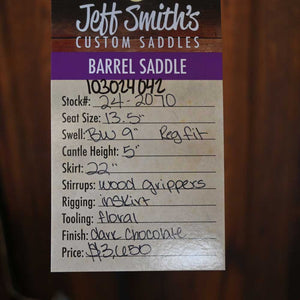 Jeff Smith's
CUSTOM SADDLES
BARREL SADDLE
103024042
Stock#: 24-2070
Seat Size: 13.5"
Swell: BW 9" Reg fit
Cantle Height: 5"
Skirt: 22"
Stirrups: wood grippers
Rigging: inskirt
Tooling: floral
Finish: dark chocolate
Price: $3,650